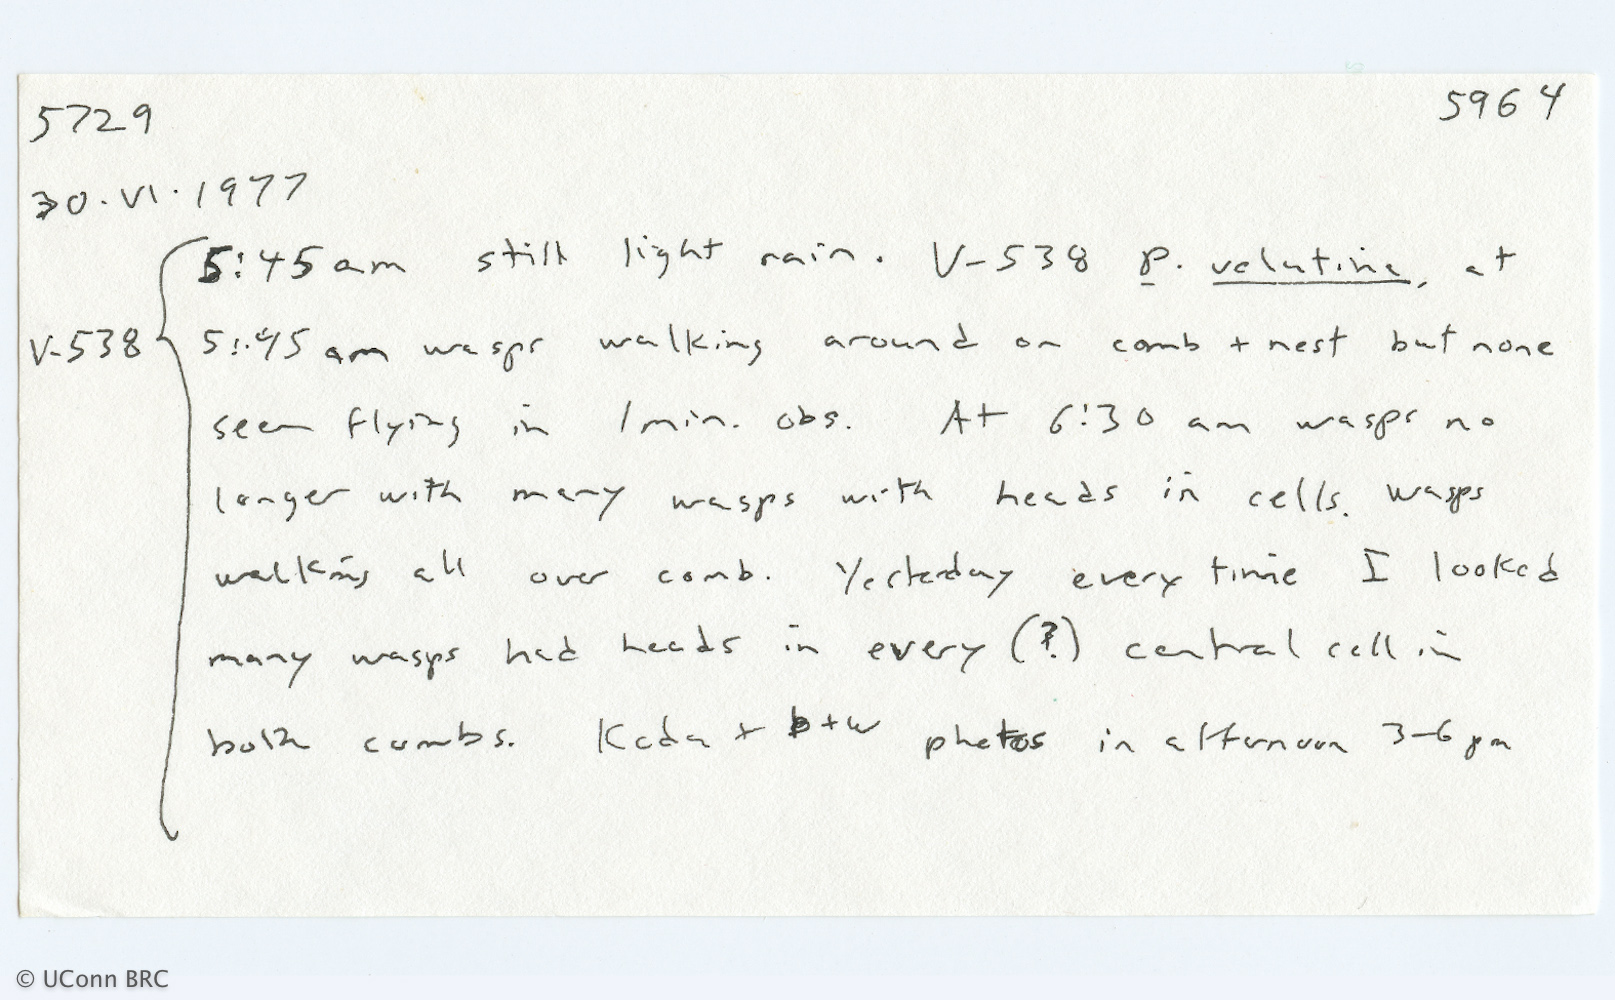 5729
5964
30.VI.1977
5:45 am still light rain. V-538 P. velutina, at
V-538
5:45 am wasps walking around on comb + nest but none
seen flying in 1 min. obs. At 6:30 am wasps no
longer with many wasps with heads in cells. wasps
walking all over comb. Yesterday every time I looked
many wasps had heads in every (?) central cell in
both combs. Koda + b+w photos in afternoon 3-6 pm
© UConn BRC